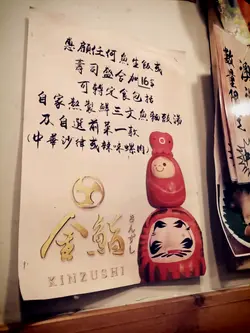 惠顧任何魚生飯或
壽司盛合加16$
可轉定食包括
自家熬製鮮三文魚頭豉湯
及自選前菜一款
(中華沙律或辣味螺肉)
金鮨
きんずし
KINZUSHI